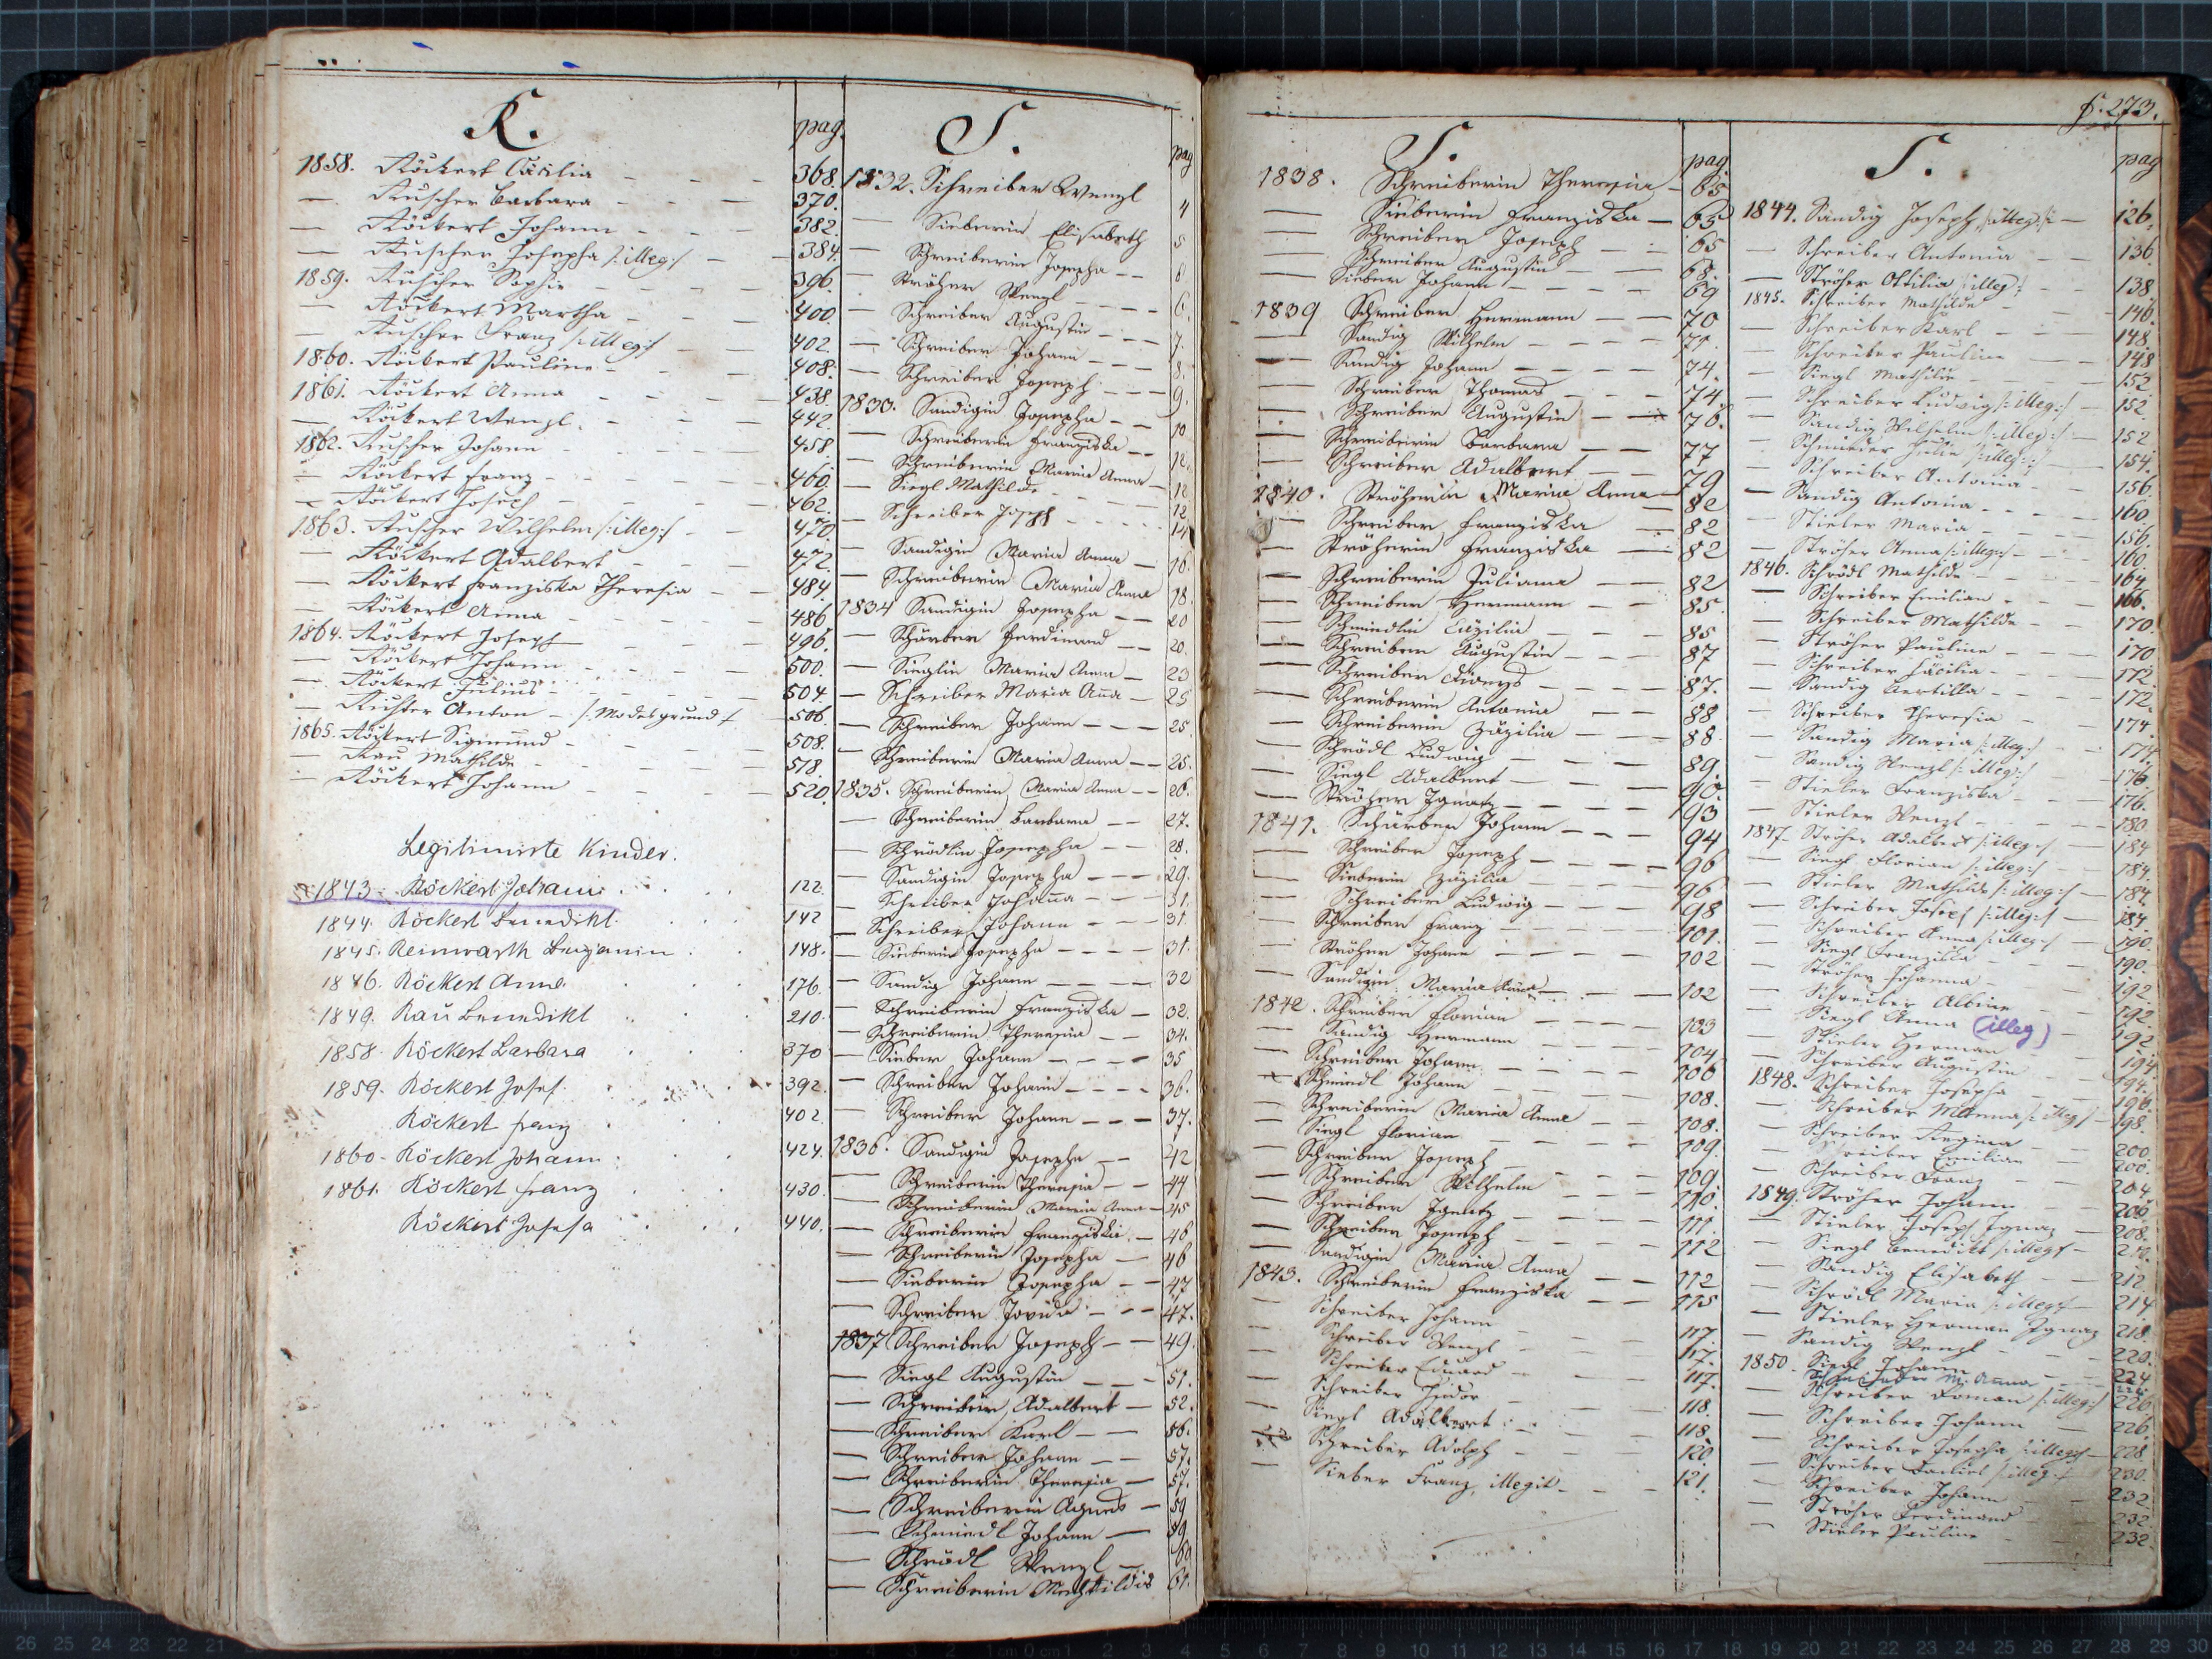 R.
pag.
1858. Röckert Cäcilia - - - 368.
— Ruscher Barbara - - - 370.
— Röckert Johann - - - 382.
— Ruscher Josepha /:illeg:/ - - 384.
1859. Ruscher Sophie - - - 396.
— Röckert Martha - - - 400.
— Ruscher Franz /:illeg:/ - - 402.
1860. Röckert Pauline - - - 408.
1861. Röckert Anna - - - 438.
— Röckert Wenzl. - - - 442.
1862. Ruscher Johann - - - 458.
— Röckert Franz - - - 460.
— Röckert Joseph - - - 462.
1863. Ruscher Wilhelm /:illeg:/ - - 470.
— Röckert Adalbert - - - 472.
— Röckert Franziska Theresia - - 484.
— Röckert Anna - - - 486.
1864. Röckert Joseph - - - 496.
— Röckert Johann - - - 500.
— Röckert Julius - - - 504.
— Richter Anton - /:Modesgrund:/ 506.
1865. Röckert Sigmund - - - 508.
— Rau Mathilde - - - 518.
— Röckert Johann - - - 520.
Legitimirte Kinder.
1843. Röckert Johann 122.
1844. Röckert Benedikt. 142
1845. Reinwarth Benjamin 148.
1846. Röckert Anna. 176.
1849. Rau Benedikt 210.
1858. Röckert Barbara 370
1859. Röckert Josef. 392.
Röckert Franz 402.
1860. Röckert Johann 424.
1861. Röckert Franz 430.
Röckert Josefa 440.
S.
pag
1832. Schreiber Wenzl 4
— Sieberin Elisabeth 5
— Schreiberin Josepha - - 8
— Ströher Wenzl - - 6.
— Schreiber Augustin - - 7.
— Schreiber Johann - - 8.
— Schreiber Joseph - - 9.
1833. Sandigin Josepha - - 10
— Schreiberin Franziska - - 12.
— Schreiberin Maria Anna - 12
— Siegl Mathilde - - 12
— Schreiber Joseph - - 14
— Sandigin Maria Anna - 16.
— Schreiberin Maria Anna 18.
1834 Sandigin Josepha - - 20
— Schärber Ferdinand - - 20.
— Sieglin Maria Anna - 23
— Schreiber Maria Anna - 25
— Schreiber Johann - - 25.
— Schreiberin Maria Anna - - 25.
1835. Schreiberin Maria Anna - - 26.
— Schreiberin Barbara - - 27.
— Schrödlin Josepha - - 28.
— Sandigin Josepha - - 29.
— Schreiber Johanna - - 31.
— Schreiber Johann - 31
— Sieberin Josepha - - - 31.
— Sandig Johann - - - 32
— Schreiberin Franziska - 32.
— Schreiberin Theresia - - 34.
— Sieber Johann - - - 35
— Schreiber Johann - - - 36.
— Schreiber Johann - - - 37.
1836. Sandigin Josepha - - 42
— Schreiberin Theresia - - 44
— Schreiberin Maria Anna - 45
— Schreiberin Franziska - 46
— Schreiberin Josepha - 46
— Sieberin Josepha - - 47
— Schreiber Jovida - - 47.
1837 Schreiber Joseph - - 49.
— Siegl Augustin - - 51.
— Schreiber Adalbert - 52.
— Schreiber Karl - - 56.
— Schreiber Johann - - 57.
— Schreiberin Theresia - 57.
— Schreiberin Agnes - 59
— Schmiedl Johann - 59.
— Schrödl Wenzl - 60
— Schreiberin Mechtildis 61.
S.
pag
1838. Schreiberin Theresia - 65
— Sieberin Franziska - 65
— Schreiber Joseph - - 65
— Schreiber Augustin - - 68.
— Sieber Johann - - - 69
1839 Schreiber Hermann - - 70
— Sandig Wilhelm - - - 71.
— Sandig Johann - - - 74.
— Schreiber Thomas - - 74.
— Schreiber Augustin - - 76.
— Schreiberin Barbara - - 77
— Schreiber Adalbert - - 79
1840. Ströherin Maria Anna - 82
— Schreiber Franziska - 82
— Ströherin Franziska - 82
— Schreiberin Juliana - 82
— Schreiber Hermann - - 85.
— Schmiedlin Cäzilia - - 85
— Schreiber Augustin - - 87
— Schreiber Dionys - - 87.
— Schreiberin Antonia - - 88
— Schreiberin Zäzilia - - 88
— Schrödl Ludwig - - 89.
— Siegl Adalbert - - 90.
— Ströher Ignatz - - - 93
1841. Schärber Johann - - - 94
— Schreiber Joseph - - - 96
— Sieberin Zäzilia - - - 96
— Schreiber Ludwig - - - 98
— Schreiber Franz - - - 101.
— Ströher Johann - - - 102
— Sandigin Maria Anna - - 102
1842. Schreiber Florian - - 103
— Sandig Hermann - - 104
— Schreiber Johann - - - 106
— Schmiedl Johann - - - 108.
— Schreiberin Maria Anna 108.
— Siegl Florian - - - 109.
— Schreiber Joseph - - - 109.
— Schreiber Wilhelm - - - 110.
— Schreiber Ignatz - - - 111.
— Schreiber Joseph - - - 112
— Sandigin Maria Anna - - 112
1843. Schreiberin Franziska - - 115
— Schreiber Johann - - 117.
— Schreiber Wenzl - - 117.
— Schreiber Eduard - - 117.
— Schreiber Isidor - - 118.
— Siegl Adalbert - - 118.
— Schreiber Adolph - - 120.
— Sieber Franz, illegit. - - 121.
S. 273.
S.
pag
1844. Sandig Joseph /:illeg:/ - 126.
— Schreiber Antonia - - 136.
— Ströher Ottilia /:illeg:/ - - 138
1845. Schreiber Mathilde - - 146.
— Schreiber Karl - - 148.
— Schreiber Pauline - - 148
— Siegl Mathilde - - 152
— Schreiber Ludwig /:illeg:/ - 152.
— Sandig Wilhelm /:illeg:/ - 152
— Schmieder Julie /:illeg:/ 154.
— Schreiber Antonia - - 156.
— Sandig Antonia - - - 160
— Stieler Maria 156.
— Ströher Anna /:illeg:/ - - 160.
1846. Schrödl Mathilde - - 164.
— Schreiber Emilian - - 166.
— Schreiber Mathilde - - 170.
— Ströher Pauline - - 170
— Schreiber Cäcilia - - 172.
— Sandig Bertilla - - 172.
— Schreiber Theresia - 174.
— Sandig Maria /:illeg:/ - 174.
— Sandig Wenzl /:illeg:/ - 176.
— Stieler Franziska - - 176.
— Stieler Wenzl - - - 180.
1847. Ströher Adalbert /:illeg:/ - 184
— Siegl Florian /:illeg:/ - 184.
— Stieler Mathilde /:illeg:/ - 184.
— Schreiber Josef /:illeg:/ - 184.
— Schreiber Anna /:illeg:/ - 190.
— Siegl Franziska - - 190.
— Ströher Johanna - - 192.
— Schreiber Albine - - 192.
— Siegl Anna (illeg) 192
— Stieler Herman 194
— Schreiber Augustin - - 194.
1848. Schreiber Josepha - - 196.
— Schreiber M. Anna /:illeg:/ - 198.
— Schreiber Regina - - 200.
— Schreiber Emilian - - 200.
— Schreiber Franz - - 204
1849. Ströher Johann - - 206
— Stieler Joseph Ignaz - 208.
— Siegl Benedikt /:illeg:/ - 210.
— Sandig Elisabeth - - 212
— Schrödl Maria /:illeg:/ - 214
— Stieler Herman Ignaz 218.
— Sandig Wenzl - - - 220.
1850. Siegl Johann - - 224
M. Anna 224
— Schreiber Roman /:illeg:/ 226
— Schreiber Johann - - 226.
— Schreiber Josepha /:illeg:/ - 228
— Schreiber Daniel /:illeg:/ 230.
— Schreiber Johann - - 232
— Ströher Ferdinand - - 232.
— Stieler Pauline - - 232